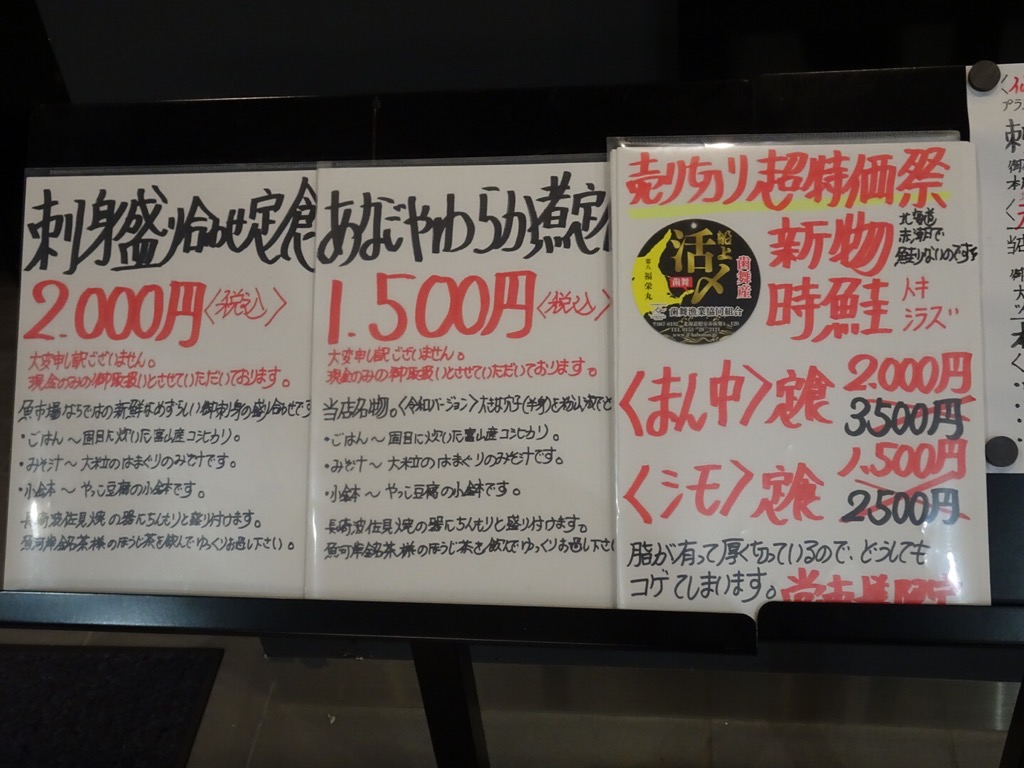 刺身盛り合わせ定食
2.000円〈税込〉
大変申し訳ございません。
現金のみの御取扱いとさせていただいております。
魚市場ならではの新鮮なめずらしい御刺身の盛り合わせです
・ごはん～周日に炊いた富山産コシヒカリ。
・みそ汁～大粒のはまぐりのみそ汁です。
・小鉢～やっこ豆腐の小鉢です。
長崎波佐見焼の器にちんもりと盛り付けます。
魚河岸銘茶様のほうじ茶を飲んでゆっくりお過し下さい。
あなごやわらか煮定
1.500円〈税込〉
大変申し訳ございません。
現金のみの御取扱いとさせていただいております。
当店名物。〈令和バージョン〉大きな穴子(半身)を
・ごはん～周日に炊いた富山産コシヒカリ。
・みそ汁～大粒のはまぐりのみそ汁です。
・小鉢～やっこ豆腐の小鉢です。
長崎波佐見焼の器にちんもりと盛り付けます。
魚河岸銘茶様のほうじ茶を飲んでゆっくりお過し下さい
売り切り超特価祭
船上活〆
歯舞
第八 福栄丸
歯舞産
歯舞漁業協同組合
新物
時鮭
北海道
赤潮で
獲りないのです
トキ
シラズ
〈まん中〉定食
2.000円
3500円
〈シモ〉定食
1.500円
2500円
脂が有って厚く切っているので、どうしても
コゲてしまります。